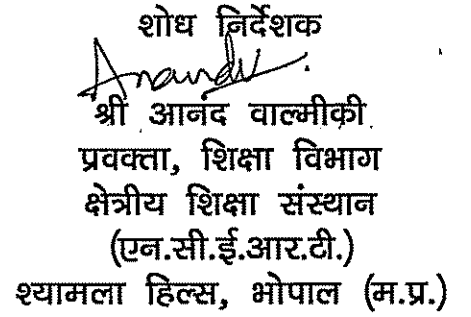 शोध निर्देशक
Anandv.
श्री आनंद वाल्मीकी
प्रवक्ता, शिक्षा विभाग
क्षेत्रीय शिक्षा संस्थान
(एन.सी.ई.आर.टी.)
श्यामला हिल्स, भोपाल (म.प्र.)